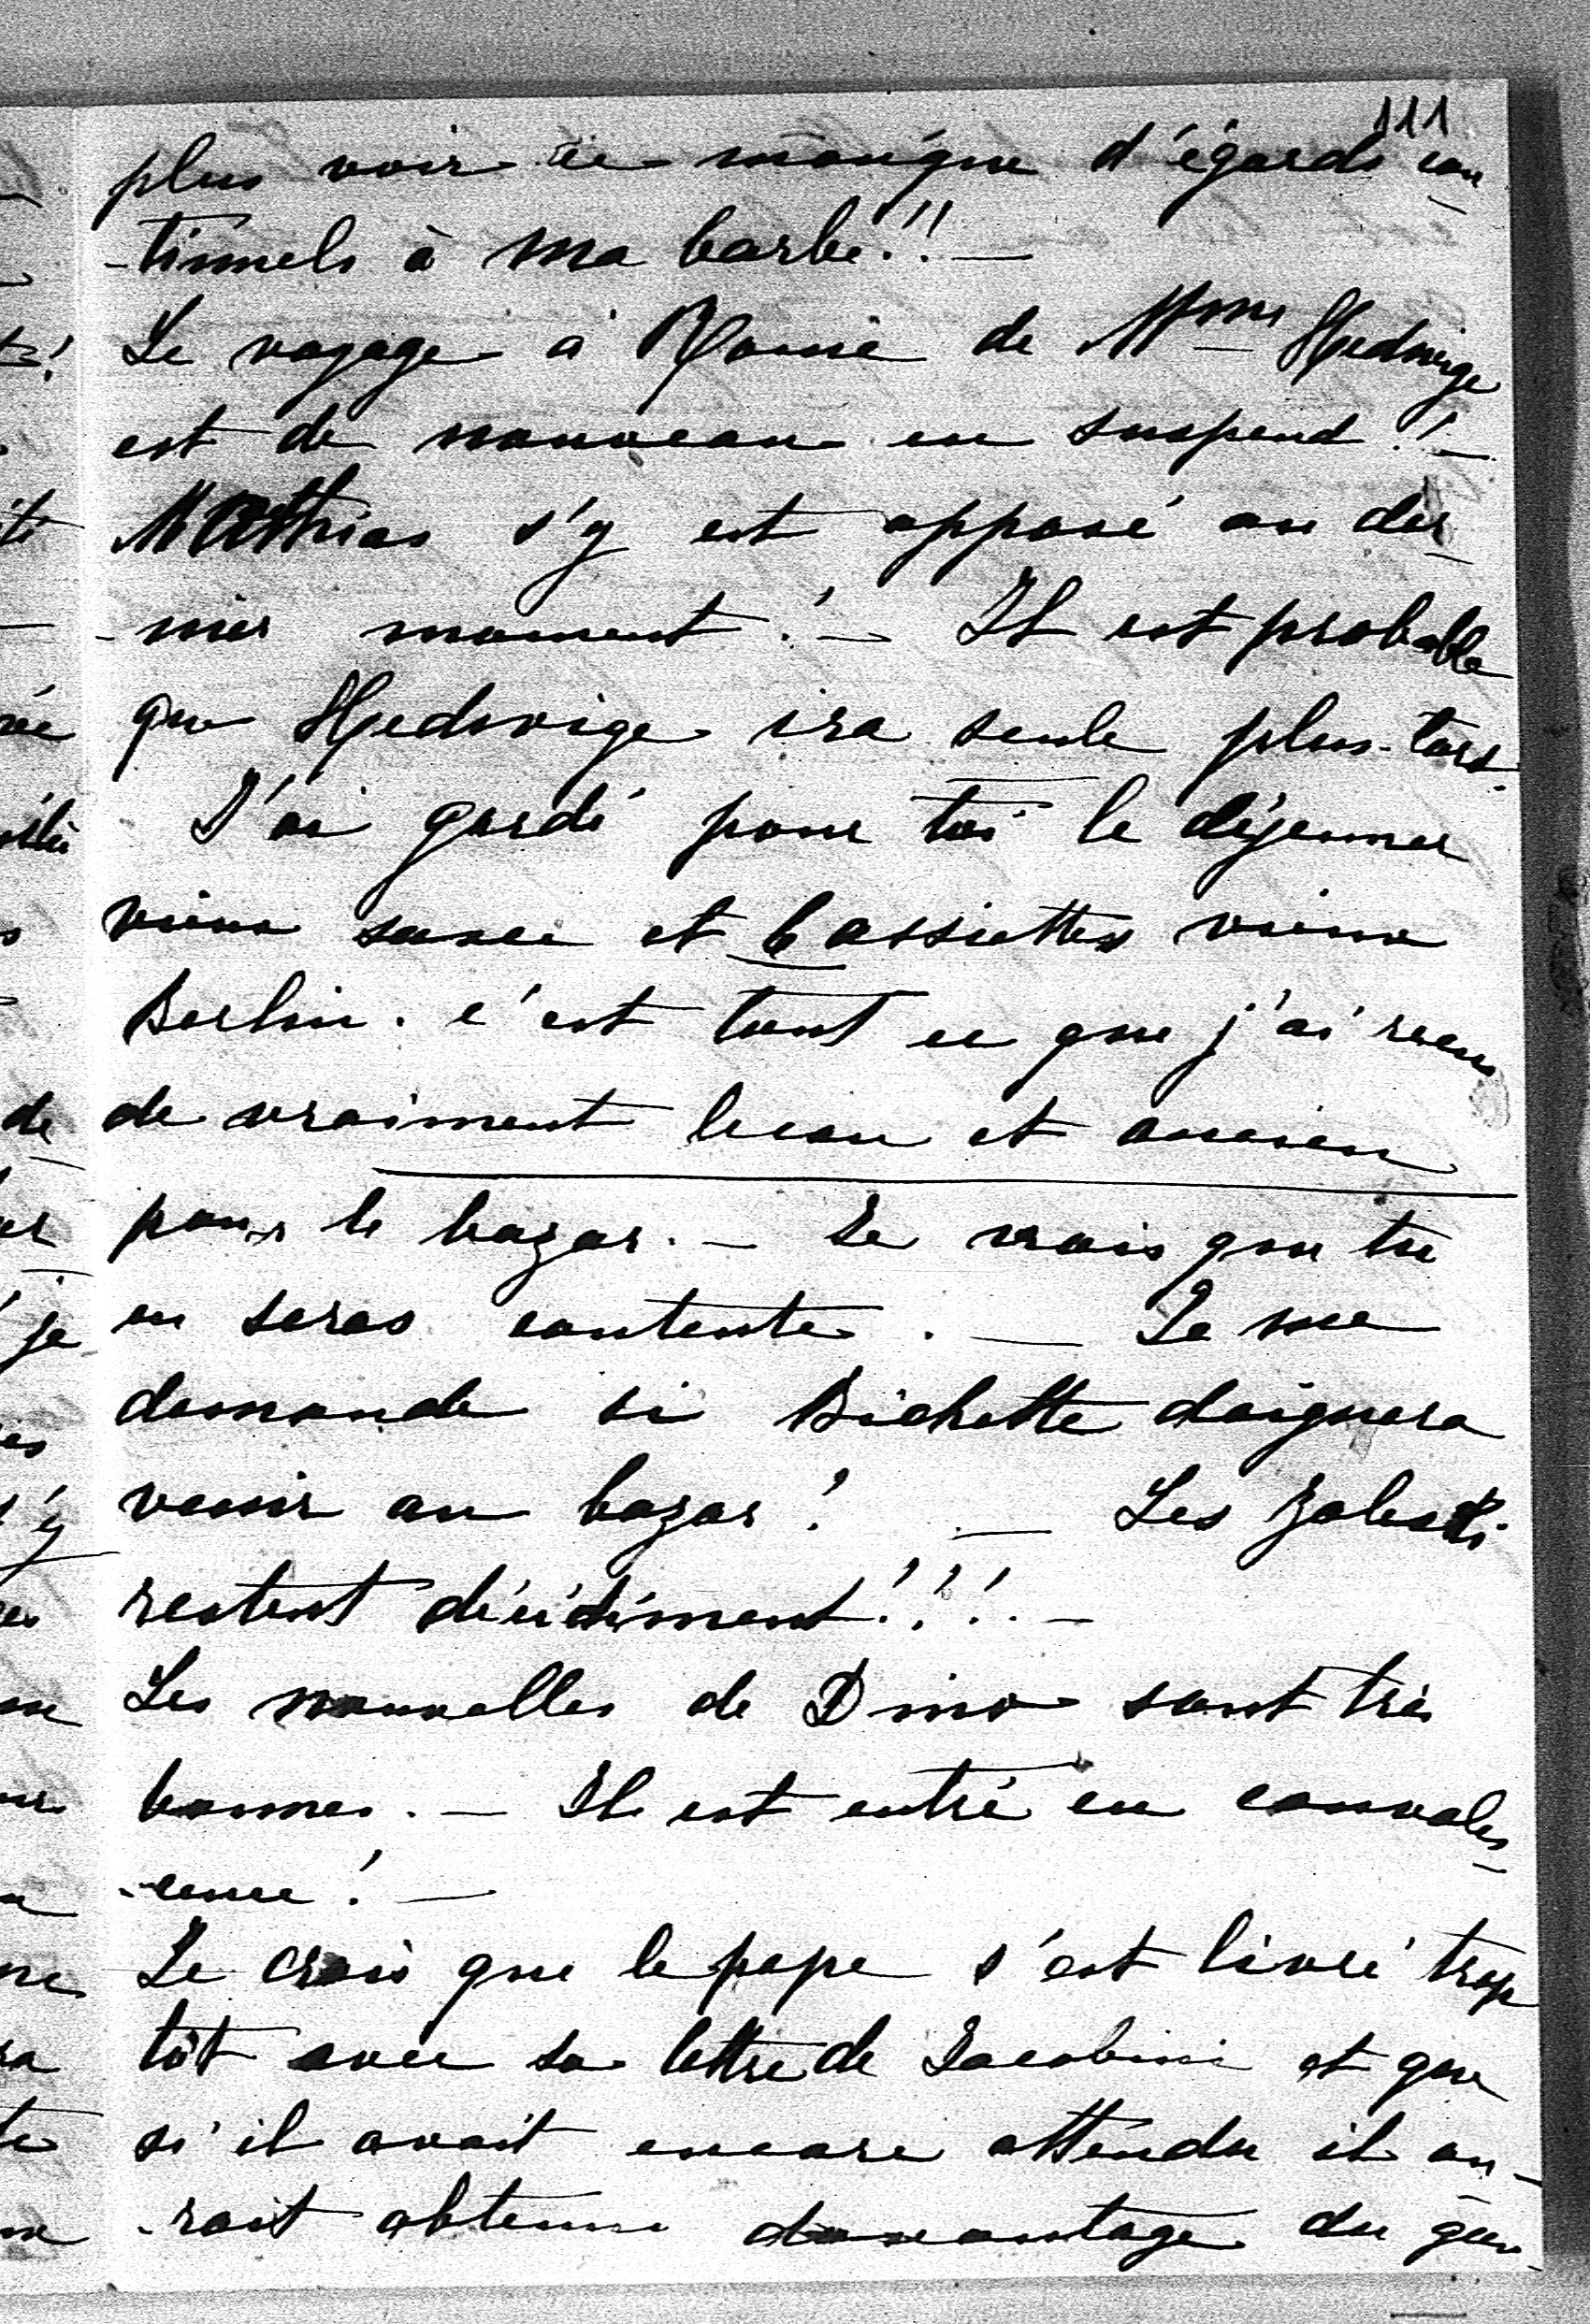 111
plus voir ce manque d'égards con
-tinuels à ma barbe!! —
Le voyage à Rome de Mme Hedwige
est de nouveau en suspend! —
Mathias s'y est opposé au der
-nier moment! — Il est probable
que Hedwige ira seule plus tard.
J'ai gardé pour toi le déjeuner
vieux saxe et 6 assiettes vieux
Berlin. c'est tout ce que j'ai recu
de vraiment beau et ancien
pour le bazar. — Je crois que tu
en seras contente. — Je me
demande si Bichette daignera
venir au bazar? — Les Zaleski
restent décidément!!! —
Les nouvelles de Dino sont très
bonnes. — Il est entré en convales
-cence! —
Je crois que le pape s'est livré trop
tôt avec sa lettre de Jacobini et que
si il avait encore attendu il au-
-rait obtenu davantage du gou-